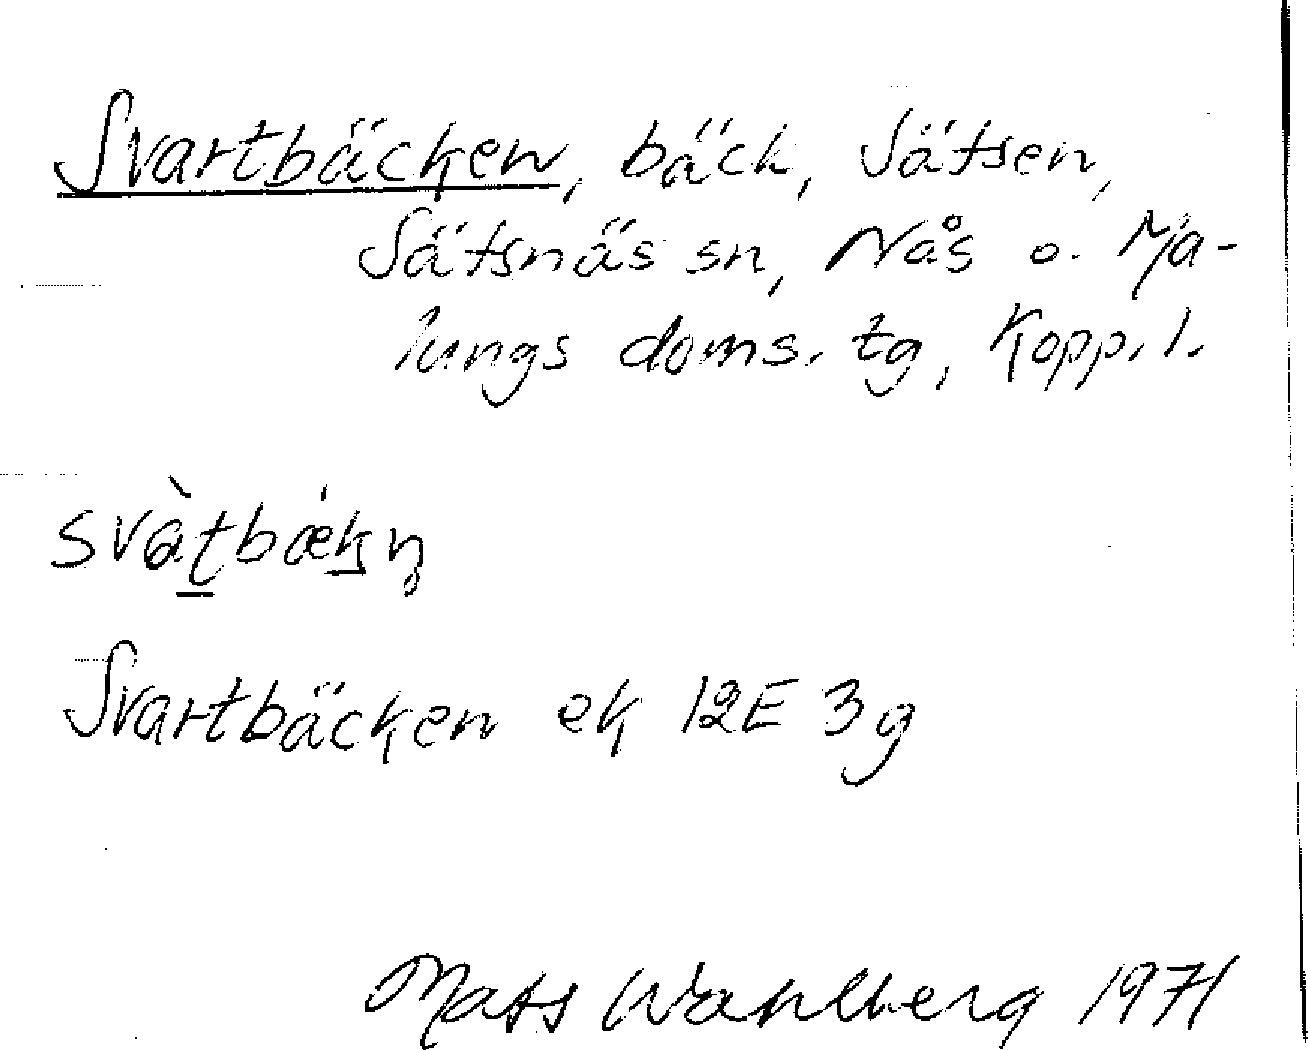 Svartbäcken, bäck, Sätsen,
Sätsnäs sn, Nås o. Ma-
lungs doms. tg, Kopp. l.
svàtbækn̥
Svartbäcken ek 12E 3g
Mats Wahlberg 1971